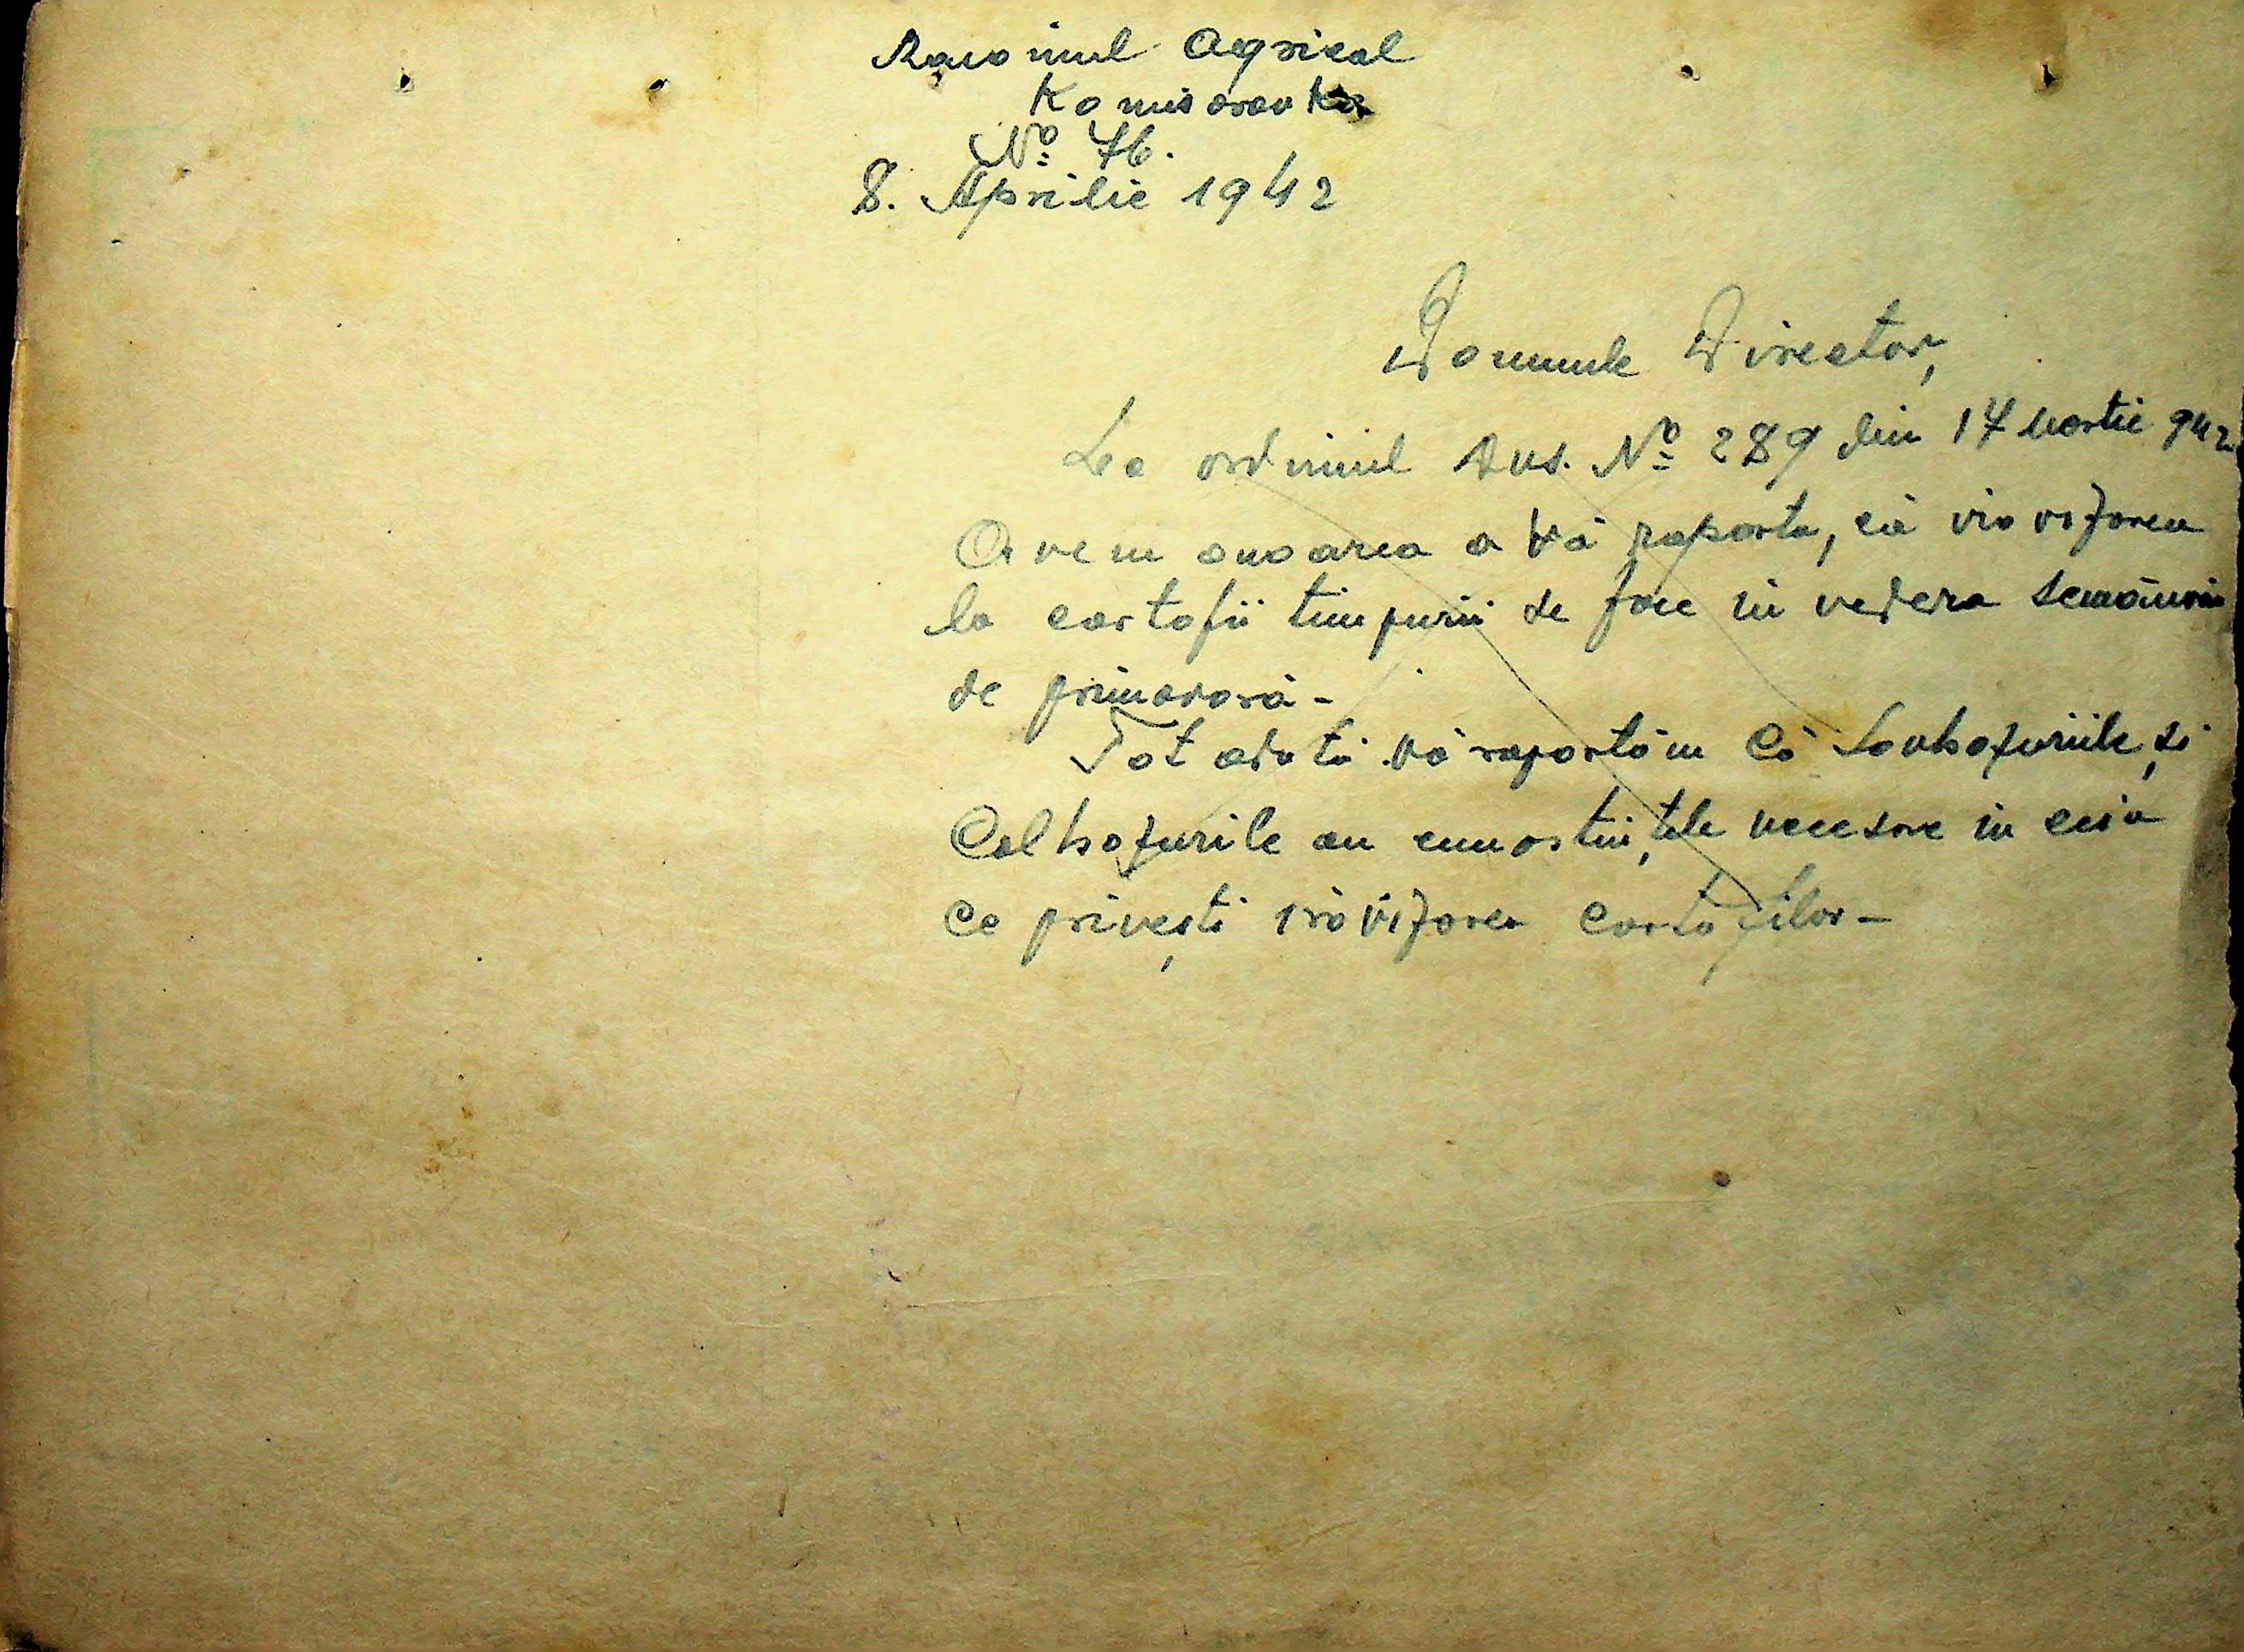 Raionul Agricol
Komisarovka
No 76.
8. Aprilie 1942
Domnule Director,
La ordinul Dvs. No 289 din 17 Martie 942
Avem onoarea a Vă raporta, că iarovizarea
la cartofii timpurii se face în vedera semănări
de primăvară -
Tot odată Vă raportăm Că Sovhozuriile, și
Colhozurile au cunostiințele necesare în ceia
ce privești iarovizarea Cartofilor -